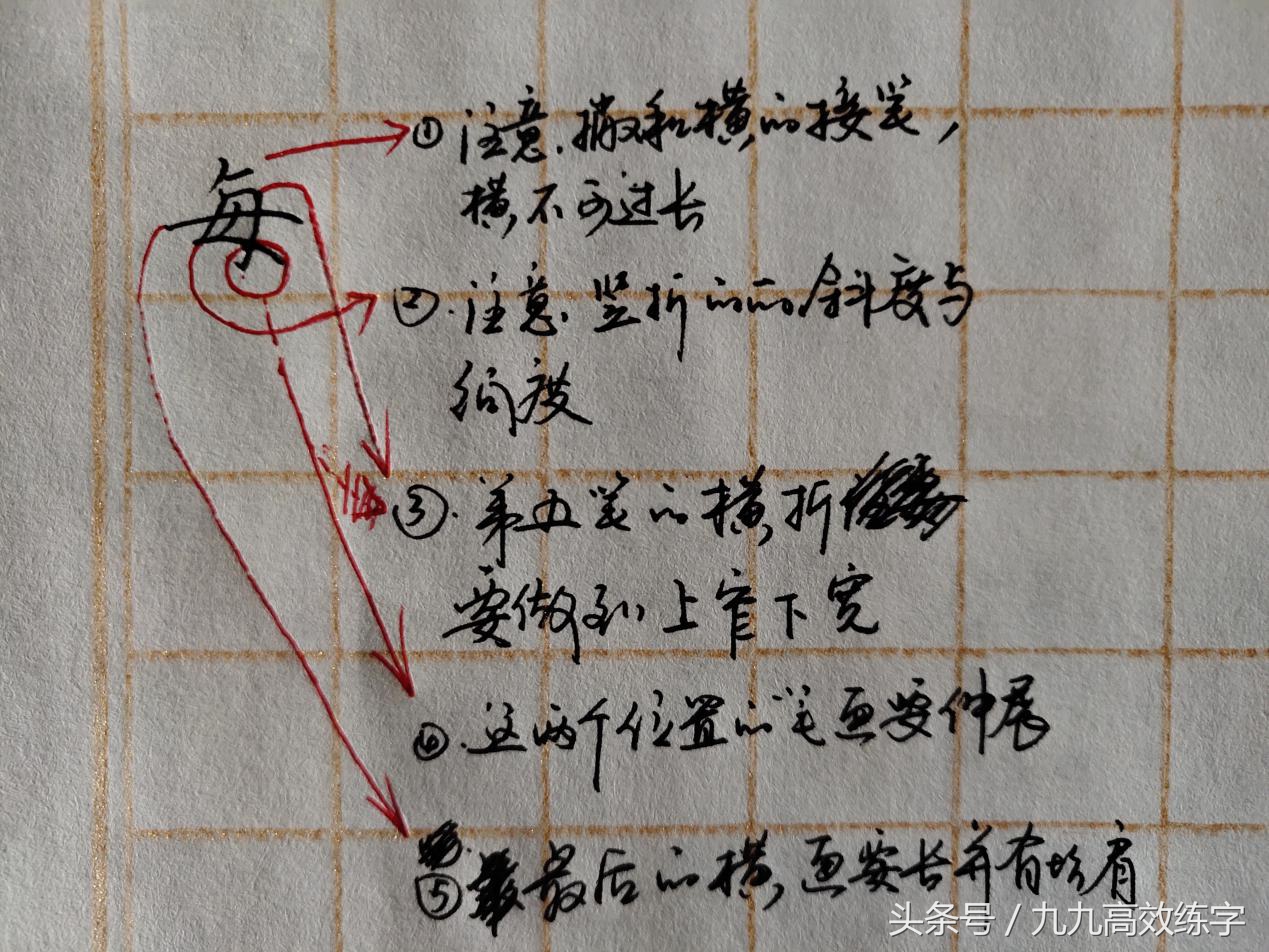 每
①注意.撇和横的接笔，
横不可过长
②.注意.竖折的的斜度与
③.第五笔的横折
要做到上窄下宽
④.这两个位置的笔画要伸展
⑤最后的横画要长并有
头条号 / 九九高效练字